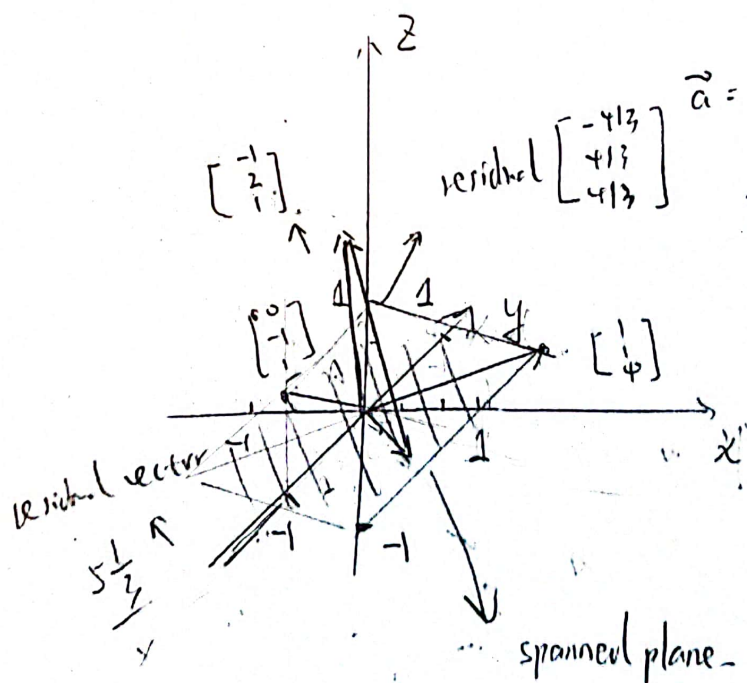 Z
a⃗ =
residual [ -4/3 4/3 4/3 ]
[ -1 2 1 ]
1 1
y
[ 0 -1 1 ]
[ 1 1 0 ]
-1
1
x
residual vector
-1
-1
5 1/3
spanned plane